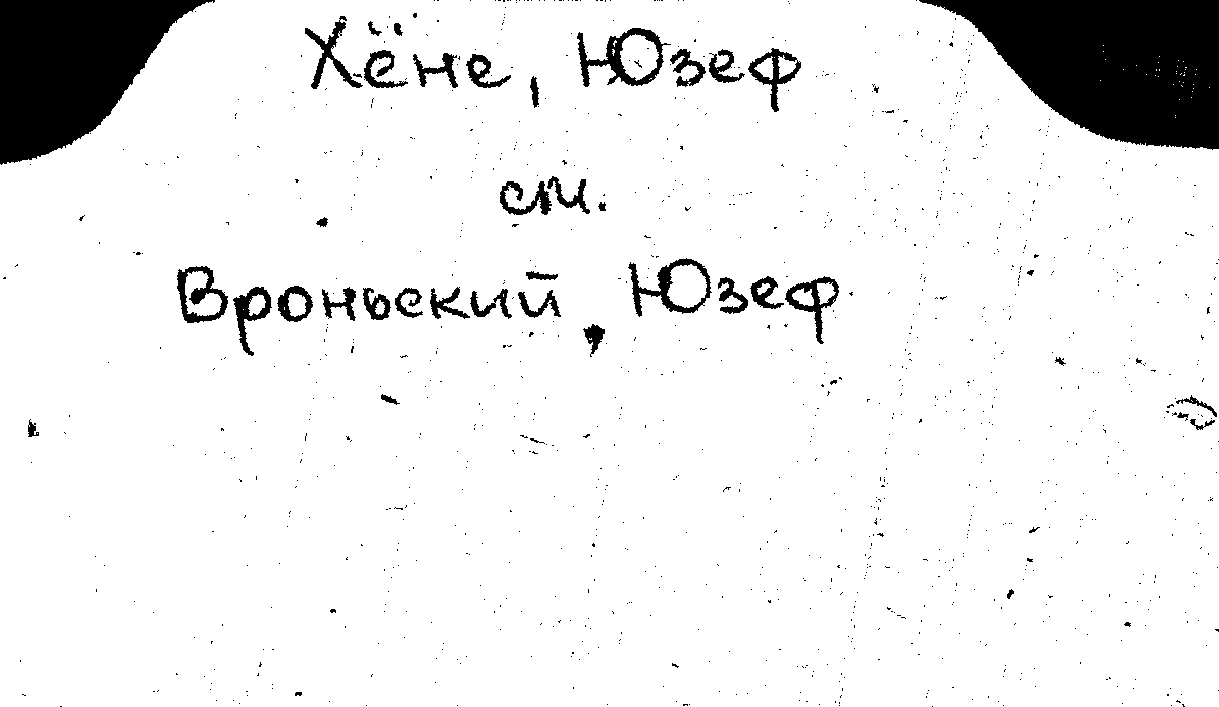 Хёне, Юзеф
см.
Вроньский, Юзеф